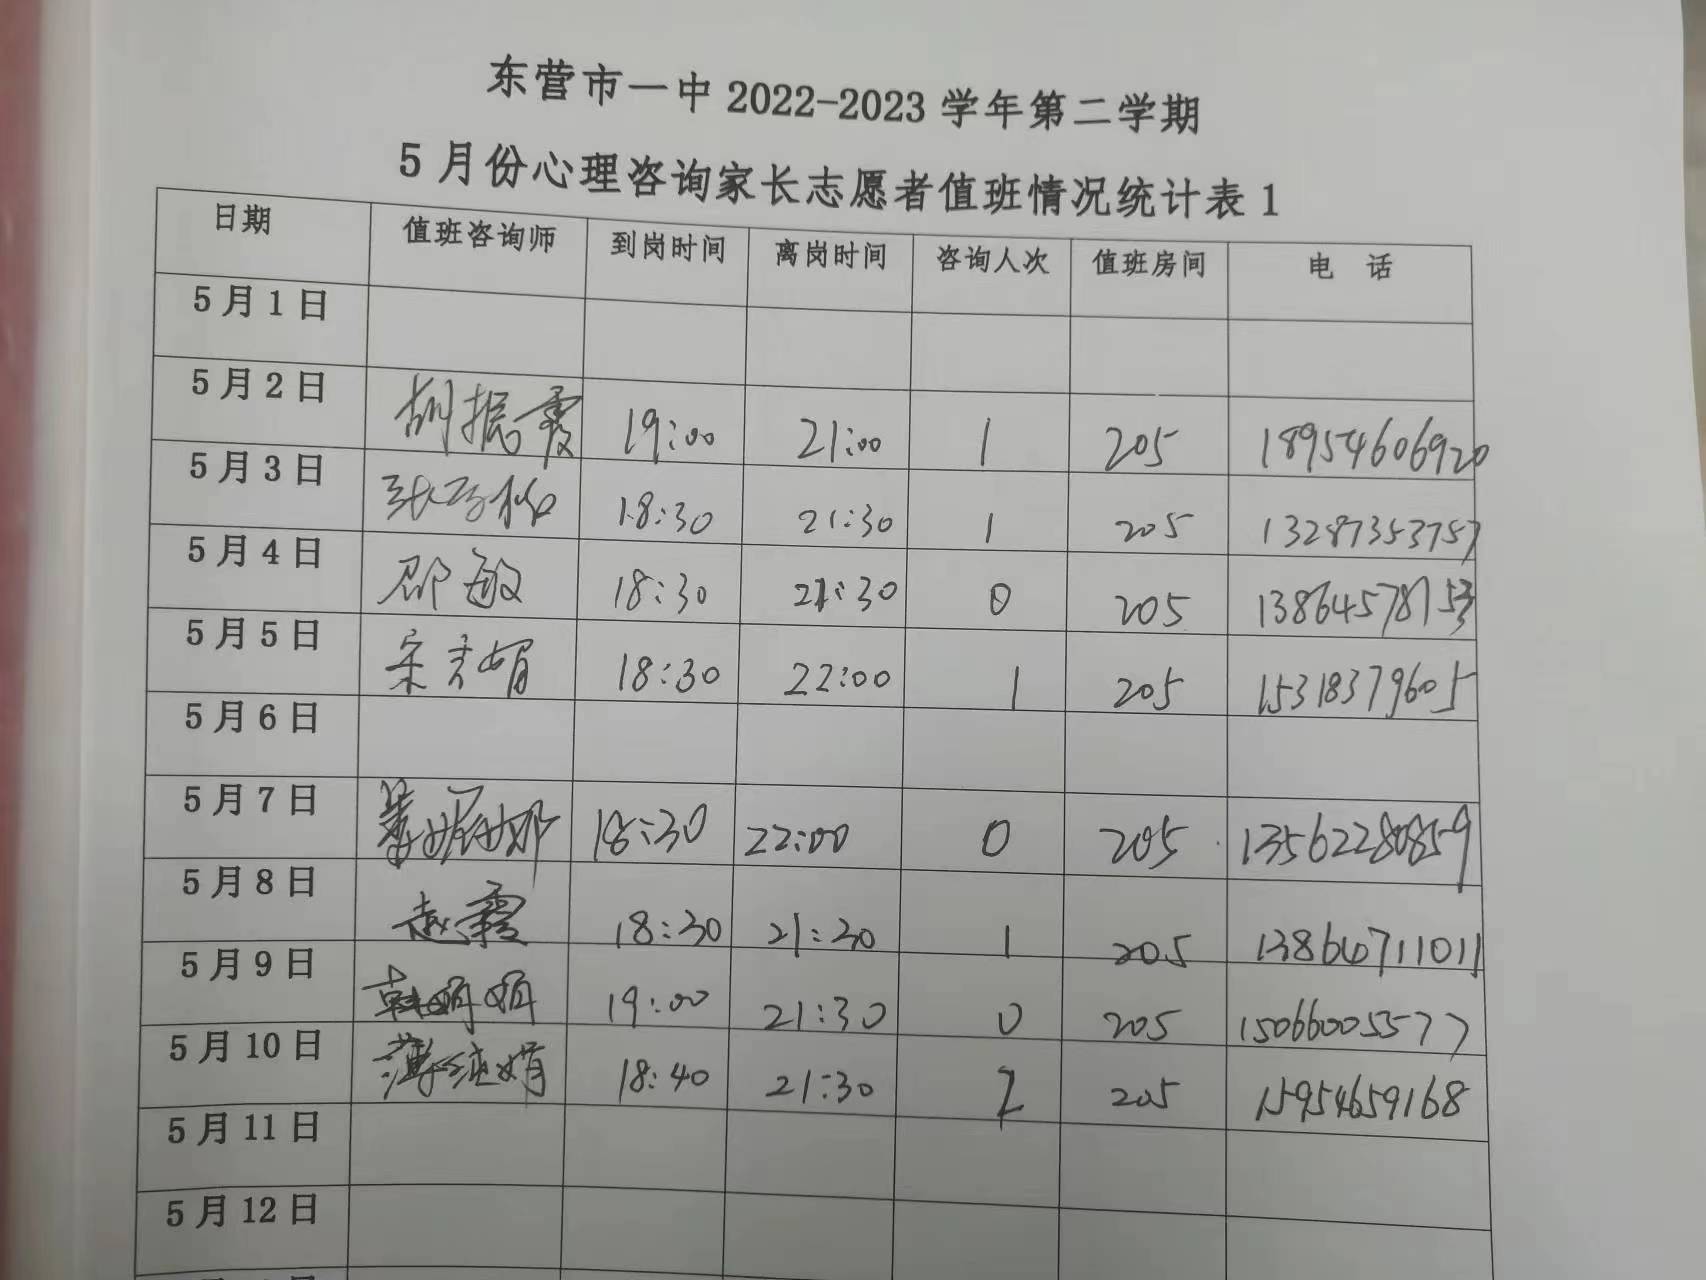 东营市一中 2022-2023 学年第二学期
5 月份心理咨询家长志愿者值班情况统计表 1
日期 值班咨询师 到岗时间 离岗时间 咨询人次 值班房间 电 话
5 月 1 日
5 月 2 日 胡振霞 19:00 21:00 1 205 18954606920
5 月 3 日 18:30 21:30 1 205 13287353757
5 月 4 日 邵敏 18:30 21:30 0 205 13864578153
5 月 5 日 宋彦娟 18:30 22:00 1 205 15318379605
5 月 6 日
5 月 7 日 18:30 22:00 0 205 13562280859
5 月 8 日 赵霞 18:30 21:30 1 205 13864711011
5 月 9 日 韩娟娟 19:00 21:30 0 205 15066005577
5 月 10 日 18:40 21:30 2 205 15954659168
5 月 11 日
5 月 12 日